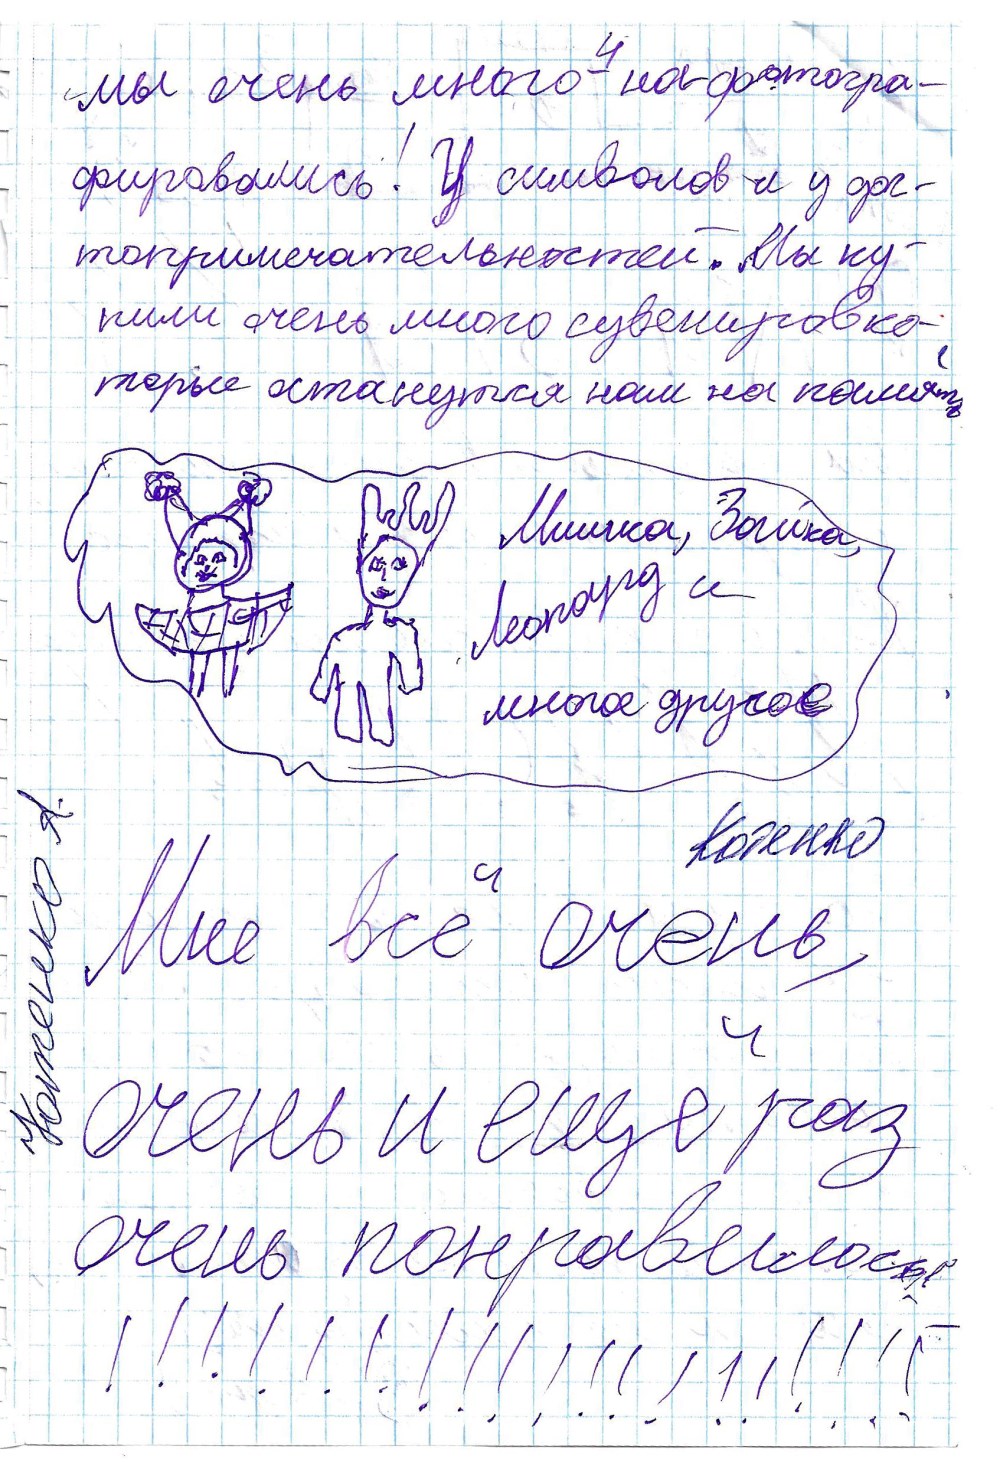 мы очень много на фотогра-
фировались! У символов и у дос-
топримечательностей. Мы ку-
пили очень много сувениров ко-
торые останутся нам на память
Мишка, Зайка,
Леопард и
многое другое
Мне всё очень,
очень и ещё раз
очень понравилось
!!!!!!!!!!!!!!!!!!!!